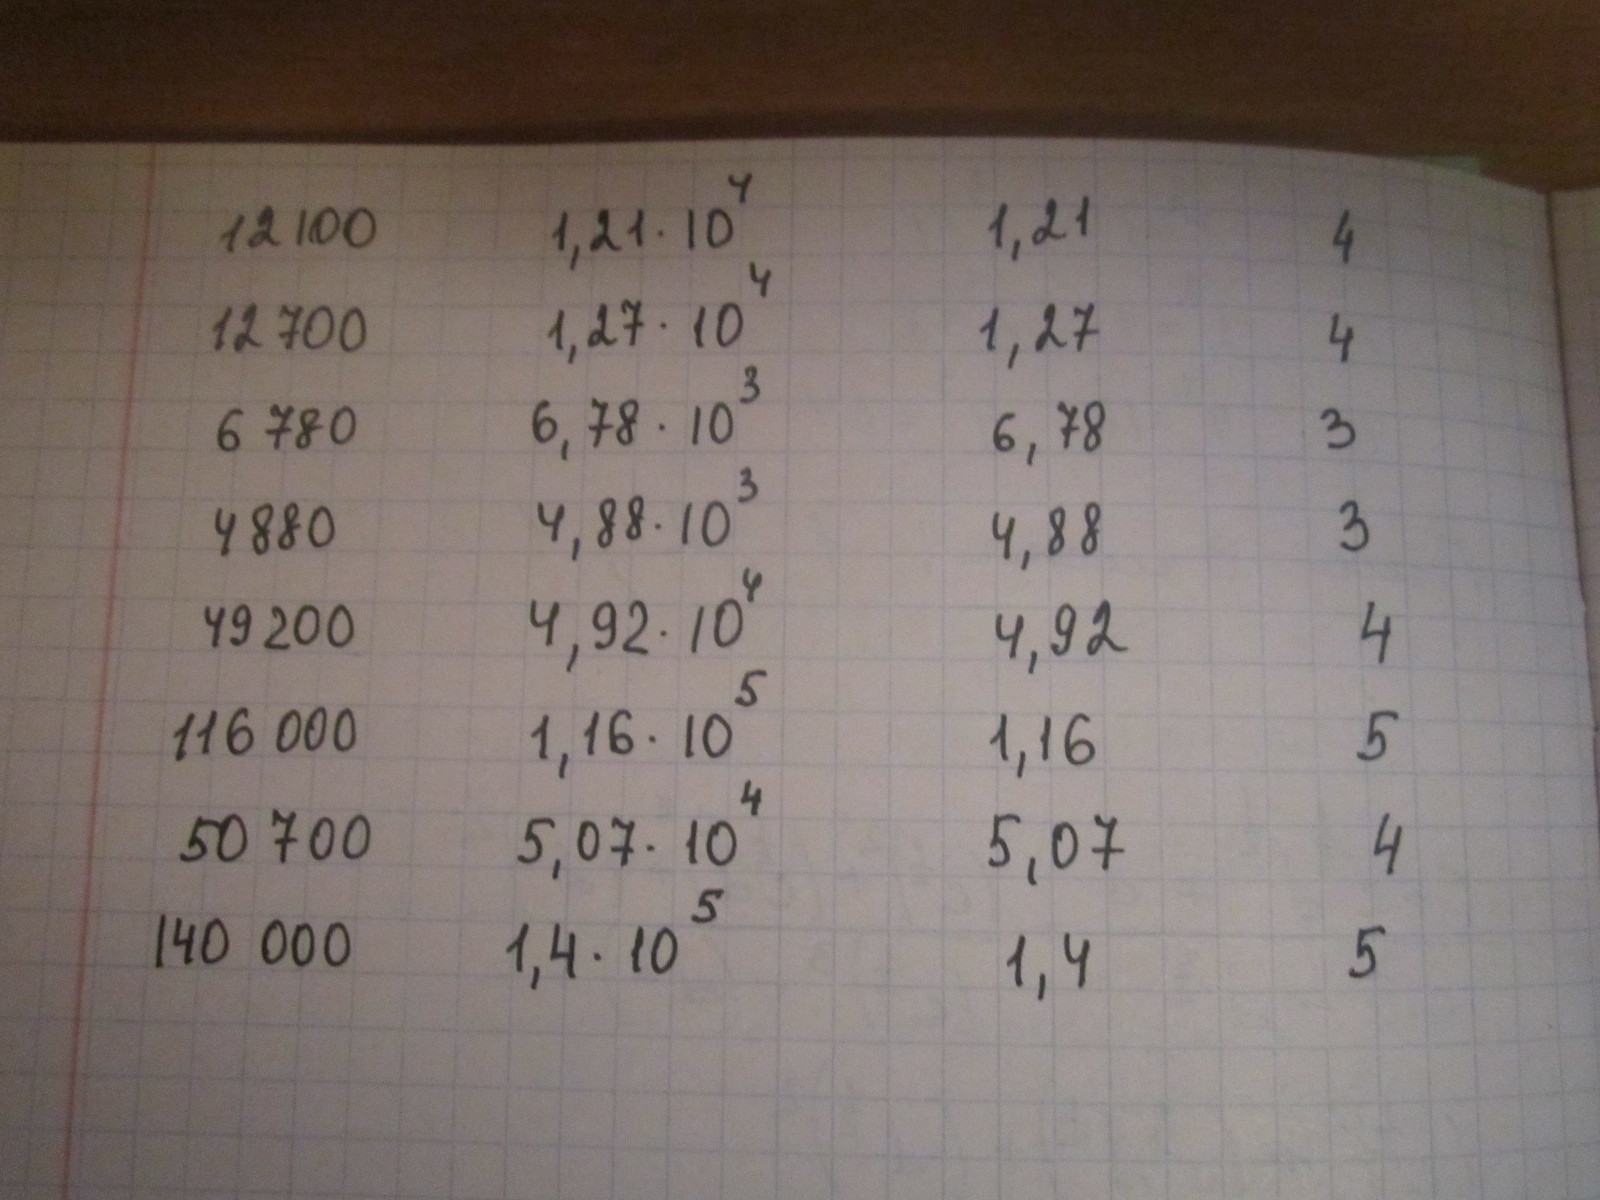 12100 1,21 · 10⁴ 1,21 4
12 700 1,27 · 10⁴ 1,27 4
6 780 6,78 · 10³ 6,78 3
4880 4,88 · 10³ 4,88 3
49200 4,92 · 10⁴ 4,92 4
116 000 1,16 · 10⁵ 1,16 5
50 700 5,07 · 10⁴ 5,07 4
140 000 1,4 · 10⁵ 1,4 5